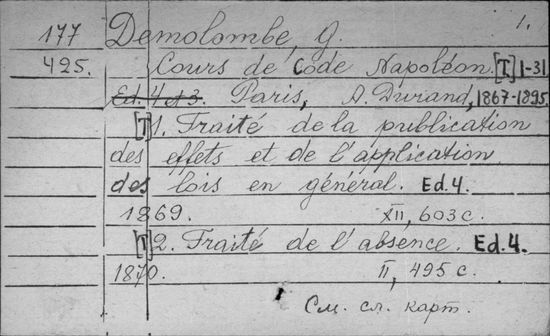 1.
177 Demolombe, G.
425. Cours de Code Napoléon. [T.] 1-31
Ed. 4 et 3. Paris, A. Durand, 1867-1895
[T] 1. Traité de la publication
des effets et de l'application
des lois en général. Ed. 4.
1869. XII, 603 c.
[T] 2. Traité de l'absence. Ed. 4.
1870. II, 495 c.
См. сл. карт.